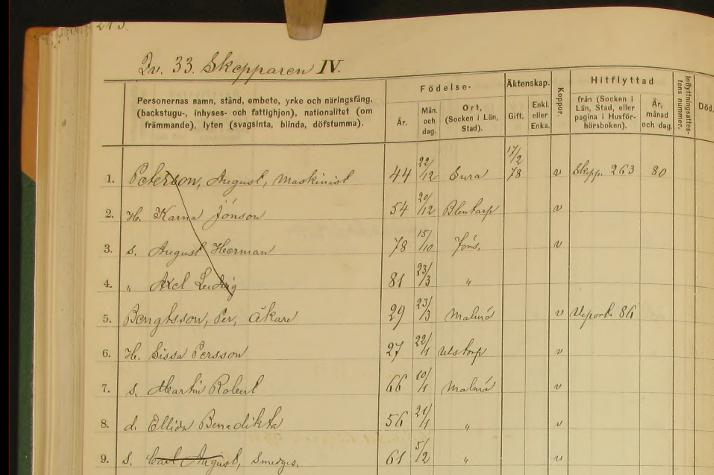 Qv. 33. Skepparen IV.
Personernas namn, stånd, embete, yrke och näringsfång, (backstugu-, inhyses- och fattighjon), nationalitet (om främmande), lyten (svagsinta, blinda, döfstumma).
Födelse-
År.
Mån. och dag.
Ort, (Socken i Län, Stad).
Äktenskap.
Gift.
Enkl. eller Enka.
Koppor.
Hitflyttad
från (Socken i Län, Stad, eller pagina i Husförhörsboken).
År, månad och dag.
Inflyttningsattestens nummer.
1. Peterson, August, Maskinist 44 22/12 17/2 78 v Skepp. 263 80
2. H. Karna Jönson 54 12 Blentarp v
3. S. August Herman 78 15/10 v
4. " Axel Ludvig 81 23/3 "
5. Bengtsson, Per, Åkare 29 23/3 Malmö v 86
6. H. Sissa Persson 27 22/1 v
7. S. Martin Robert 66 10/1 Malmö v
8. d. Benedikta 56 21/1 " v
9. S. Carl August, 61 5/12 " v